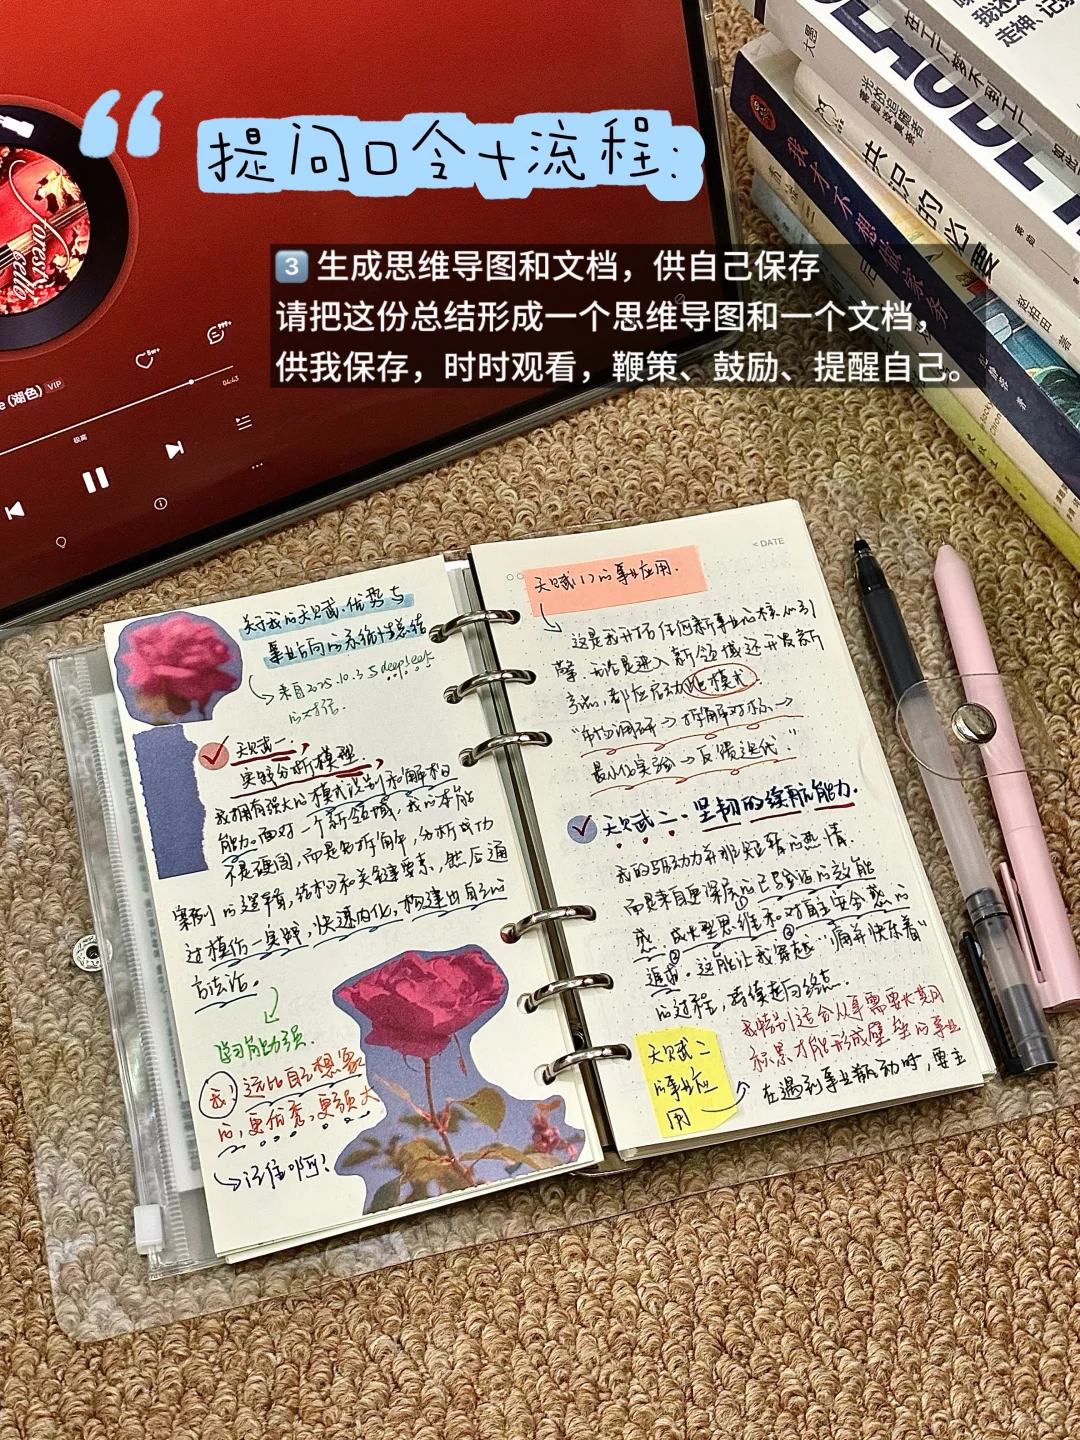 提问口令+流程:
3 生成思维导图和文档，供自己保存
请把这份总结形成一个思维导图和一个文档，
供我保存，时时观看，鞭策、鼓励、提醒自己。
(湖色) VIP
5w+
999+
04:43
极高
Forest
cello
我还
走神、记
在工厂梦不到工厂
大愚
蒋勋谈夏荷
共识的必要
我才不想做家务
赵柏田 著
关于我的天赋、优势与
事业方向的系统性总结
来自2025.10.3.5 deepseek
的大总结.
天赋一，
实践分析模型，
我拥有强大的模式识别和解构
能力。面对一个新领域，我的本能
不是硬闯，而是先拆解，分析成功
案例的逻辑，结构和关键要素，然后通
过模仿—实践，快速内化，构建出自己的
方法论。
学习能力强.
我！远比自己想象
的，更优秀，更强大
记住啊！
<DATE
天赋(1)的事业应用.
这是我开拓任何新事业的核心引
擎，无论是进入新领域还开发新
产品，都应启动此模式.
“市场调研→拆解对标→
最小化实验→反馈迭代.”
天赋二、坚韧的续航能力.
我的驱动力并非短暂的热情.
而是来自更深层的已验证的效能
感、成长型思维和对自主安全感的
追求。这能让我穿越“痛并快乐着”
的过程，直续走向终点.
我特别适合从事需要长期
积累才能形成壁垒的事业
天赋二
的事业应
用
在遇到事业瓶动时，要主